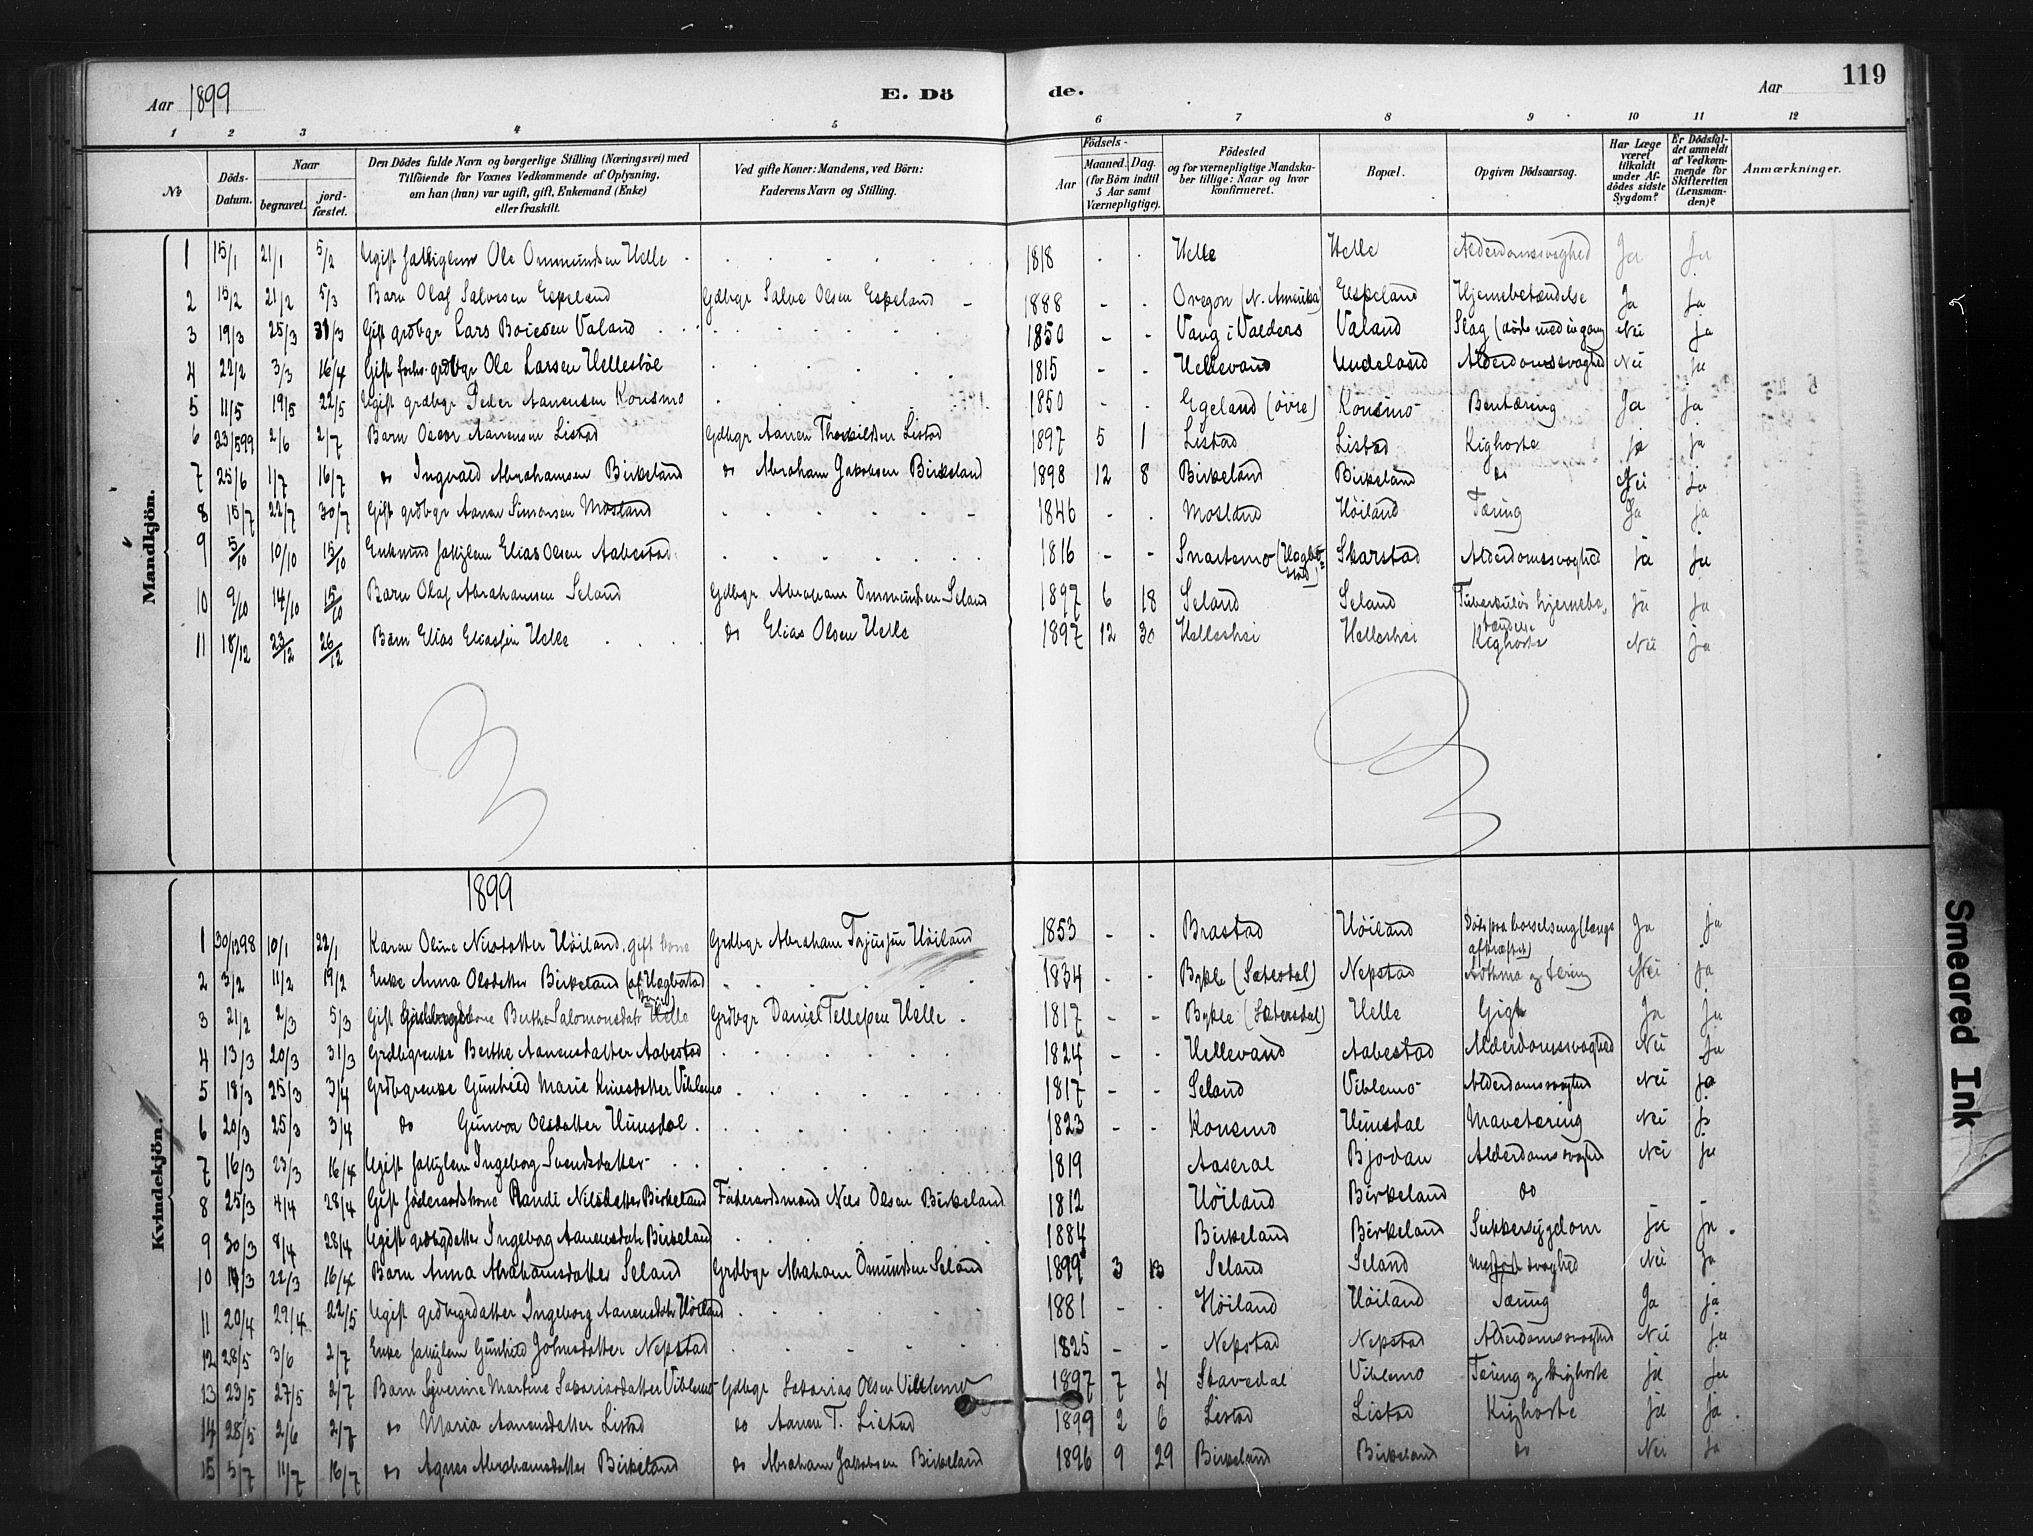 Aar 1899
E. Dö
de.
Aar
119
1 2 3 4 5 6 7 8 9 10 11 12
No
Döds-Datum.
Naar
begravet.
jord-fæstet.
Den Dödes fulde Navn og borgerlige Stilling (Næringsvei) med
Tilföiende for Voxnes Vedkommende af Oplysning,
om han (hun) var ugift, gift, Enkemand (Enke)
eller fraskilt.
Ved gifte Koner: Mandens, ved Börn:
Faderens Navn og Stilling.
Födsels-
Aar
Maaned. Dag.
(for Börn indtil
5 Aar samt
Værnepligtige).
Födested
og for værnepligtige Mandska-
ber tillige: Naar og hvor
konfirmeret.
Bopæl.
Opgiven Dödsaarsag.
Har Læge
været
tilkaldt
under Af-
dödes sidste
Sygdom?
Er Dödsfal-
det anmeldt
af Vedkom-
mende for
Skifteretten
(Lensman-
den)?
Anmærkninger.
Mandkjön.
1 15/1 21/1 5/2 Ugift fattiglem Ole Ommundsen Helle 1818 - - Helle Helle Alderdomssvaghed Ja Ja
2 15/2 21/2 5/3 Barn Olaf Salvesen Espeland Gdbgr Salve Olsen Espeland 1888 - - Oregon (N. Amerika) Espeland Hjernebetændelse Ja Ja
3 19/3 25/3 31/3 Gift grdbgr Lars Boiesen Valand 1850 - - Vang i Valders Valand Slag (døde med en gang Nei Ja
4 22/2 3/3 16/4 Gift forh. grdbgr Ole Larsen Hellesböe 1815 - - Hellevand Undeland Alderdomssvaghed Nei Ja
5 11/5 19/5 22/5 Ugift grdbgr Peder Aanensen Konsmo 1850 - - Egeland (övre) Konsmo Bentæring Ja Ja
6 23/5 99 2/6 2/7 Barn Oscar Aanensen Listad Gdbgr Aanen Thorkildsen Listad 1897 5 1 Listad Listad Kighoste ja ja
7 25/6 1/7 16/7 do Ingvald Abrahamsen Birkeland do Abraham Jakobsen Birkeland 1898 12 8 Birkeland Birkeland do Nei ja
8 15/7 22/7 30/7 Gift grdbgr Aanen Simonsen Mosland 1846 - - Mosland Höiland Tæring Ja Ja
9 5/10 10/10 15/10 Enkmnd fattiglem Elias Olsen Aabestad 1816 - - Snartemo (Hægbostad) Skarstad Alderdomssvaghed ja Ja
10 9/10 14/10 15/10 Barn Olaf Abrahamsen Seland Gdbgr Abraham Ommundsen Seland 1897 6 18 Seland Seland Tuberkuløs hjernebetændelse ja Ja
11 18/12 23/12 26/12 Barn Elias Eliassen Helle do Elias Olsen Helle 1897 12 30 Helleshei Helleshei Kighoste Nei ja
Kvindekjön.
1899
1 30/12 98 10/1 22/1 Karen Oline Nilsdatter Höiland, gift kone Grdbgr Abraham Terjussen Höiland 1853 - - Brastad Höiland Død paa barselseng Ja Ja
2 3/2 11/2 19/2 Enke Anna Olsdatter Birkeland (af Hægbostad 1834 - - Bykle (Sætersdal) Nepstad Asthma og tæring Nei ja
3 21/2 2/3 5/3 Gift kone Berthe Salomonsdatr Helle Grdbgr Daniel Tellefsen Helle 1817 - - Bykle (Sætersdal) Helle Gigt Ja Ja
4 13/3 20/3 31/3 Grdbgrenke Berthe Aanensdatter Aabestad 1824 - - Hellevand Aabestad Alderdomssvaghed Nei Ja
5 18/3 25/3 3/4 Grdbgrenke Gunhild Marie Knusdatter Viblemo 1817 - - Seland Viblemo Alderdomssvaghed Nei Ja
6 20/3 25/3 3/4 do Gunvor Olsdatter Hunsdal 1823 - - Konsmo Hunsdal Mavetæring Nei ja
7 16/3 23/3 16/4 Ugift fattiglem Ingeborg Svendsdatter 1819 Aaseral Bjodan Alderdomssvaghed Nei ja
8 25/3 4/4 28/4 Gift föderaadskone Randi Nilsdatter Birkeland Föderaadsmand Nils Olsen Birkeland 1812 Höiland Birkeland do - -
9 30/3 8/4 28/4 Ugift grdbgdatter Ingeborg Aanensdatr Birkeland 1884 Birkeland Birkeland Sukkersygdom ja ja
10 19/3 22/3 16/4 Barn Anna Abrahamsdatter Seland Grdbgr Abraham Omundsen Seland 1899 3 13 Seland Seland svaghed Nei Ja
11 20/4 29/4 22/5 Ugift grdbgrdatter Ingeborg Aanensdatr Höiland 1881 - - Höiland Höiland Tæring Ja ja
12 28/5 3/6 2/7 Enke fattiglem Gunhild Johnsdatter Nepstad 1825 - - Nepstad Nepstad Alderdomssvaghed Nei ja
13 23/5 27/5 2/7 Barn Syverine Martine Sakariasdatter Viblemo Gdbgr Sakarias Olsen Viblemo 1897 7 4 Stavedal Viblemo Tæring og kighoste ja Ja
14 28/5 2/6 2/7 do Maria Aanensdatter Listad do Aanen T. Listad 1899 2 6 Listad Listad Kighoste ja Ja
15 5/7 11/7 16/7 do Agnes Abrahamsdatter Birkeland do Abraham Jakobsen Birkeland 1896 9 29 Birkeland Birkeland do Nei Ja
Smeared Ink